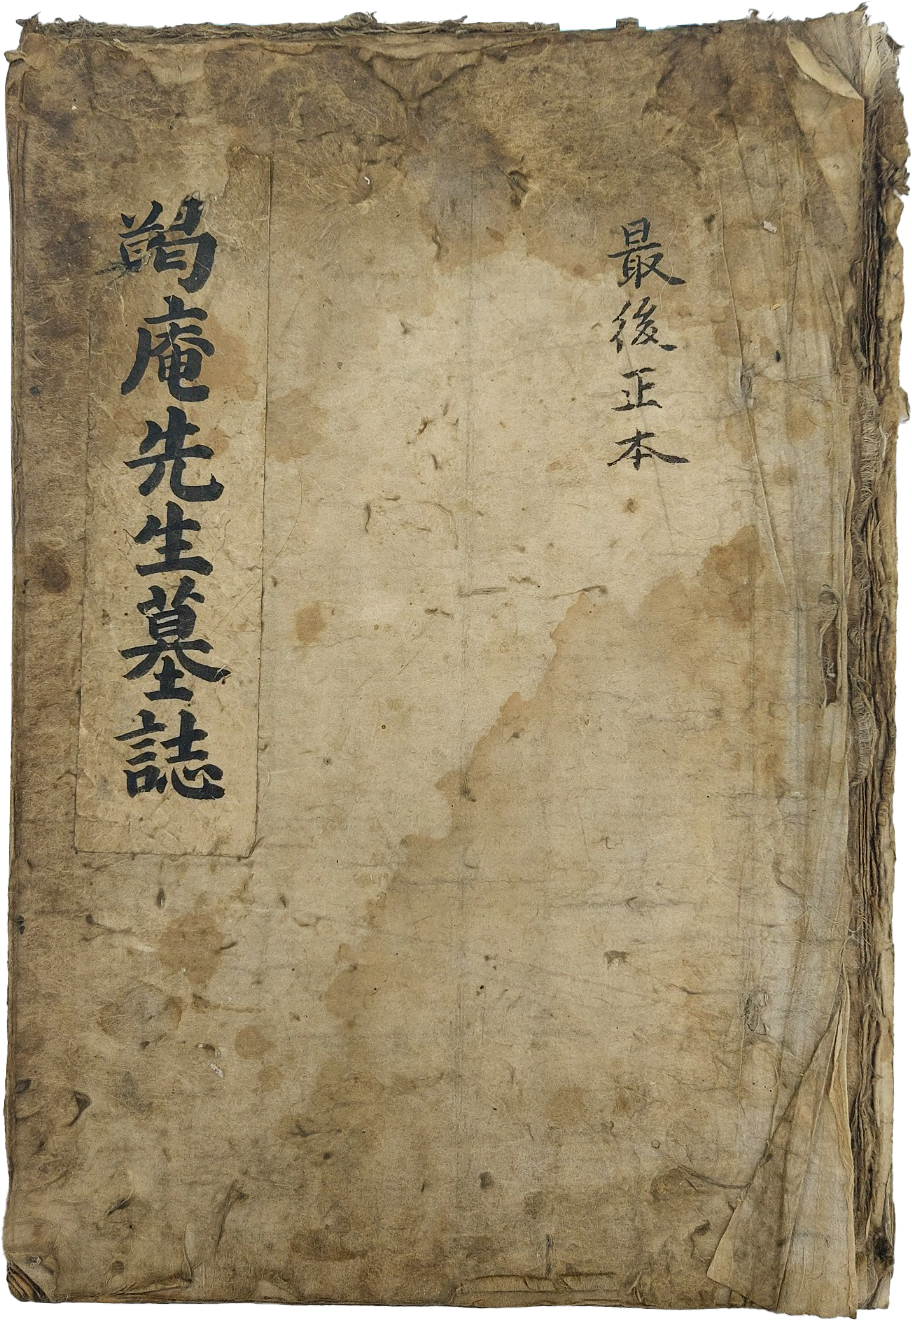 最後正本
葛庵先生墓誌